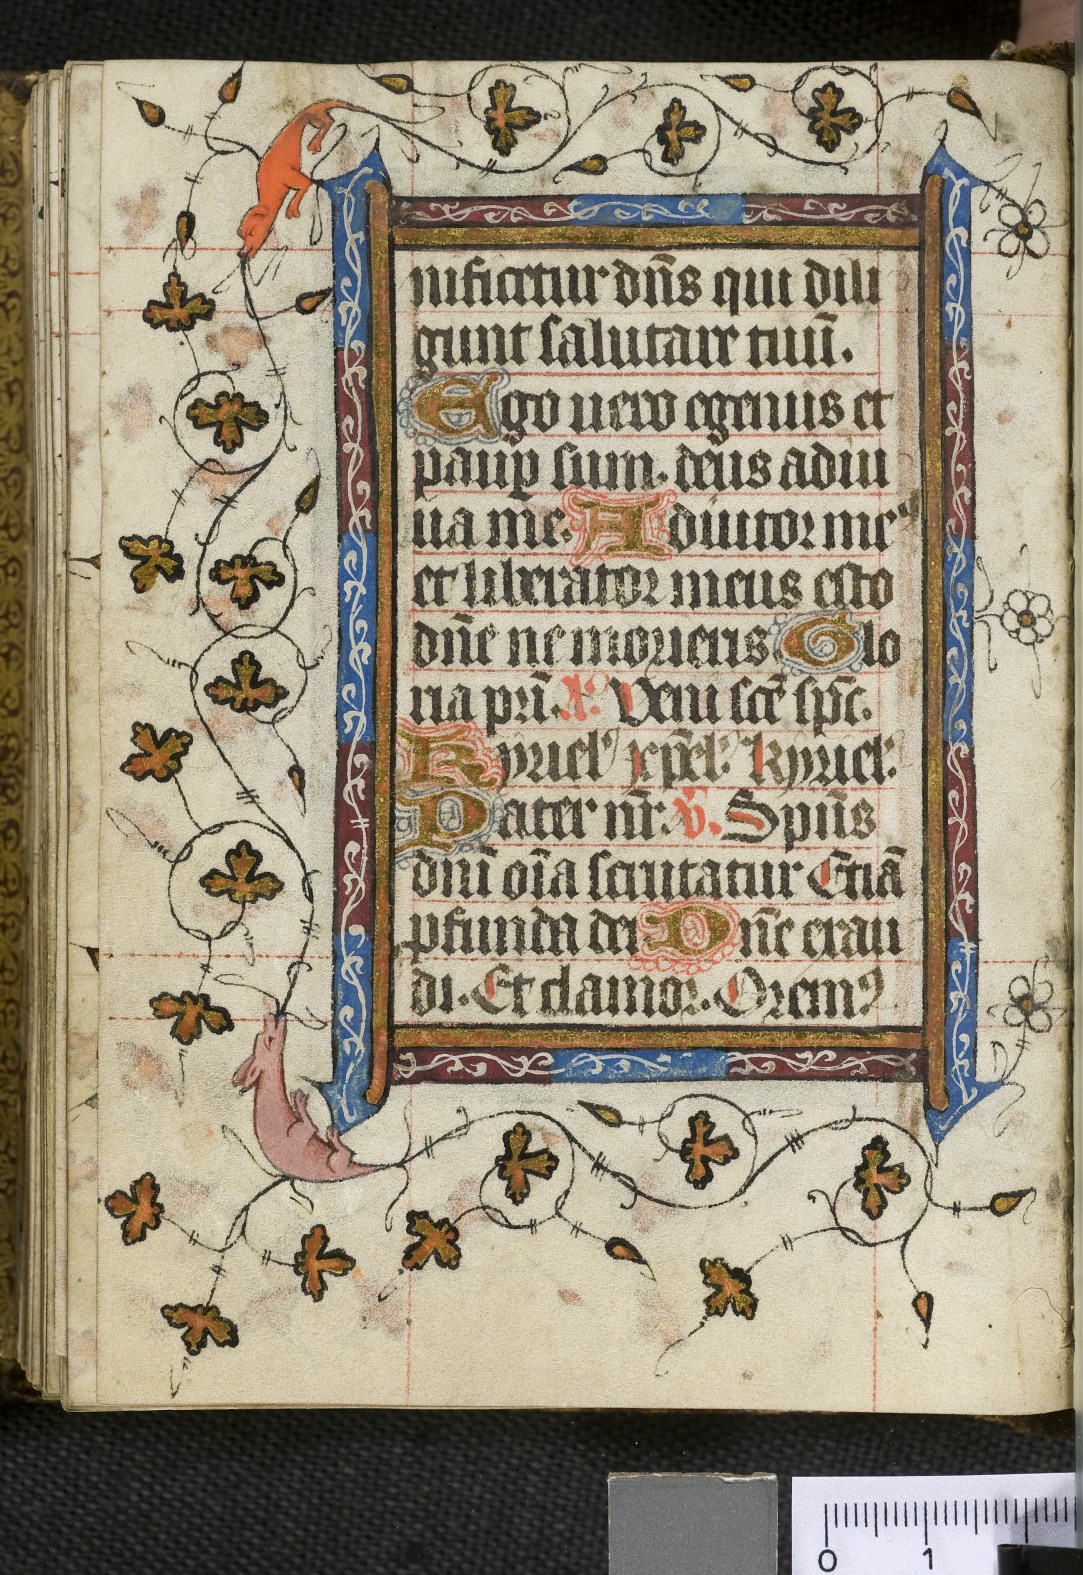 nificetur dn̄s qui dili
gunt salutare tuū.
Ego uero egenus et
paup sum. deus adiu
ua me. Adiutor meꝰ
et liberator meus esto
dn̄e ne moreris Glo
ria pr̄i. Aº. Veni sc̄e sp̄c.
Kyriel' xp̄el' Kyriel'
Pater nr̄. V. Spūs
dn̄i oīa scrutatur Etiā
pfunda dei Dn̄e exau
di. Et clamor. Oremꝰ
0 1